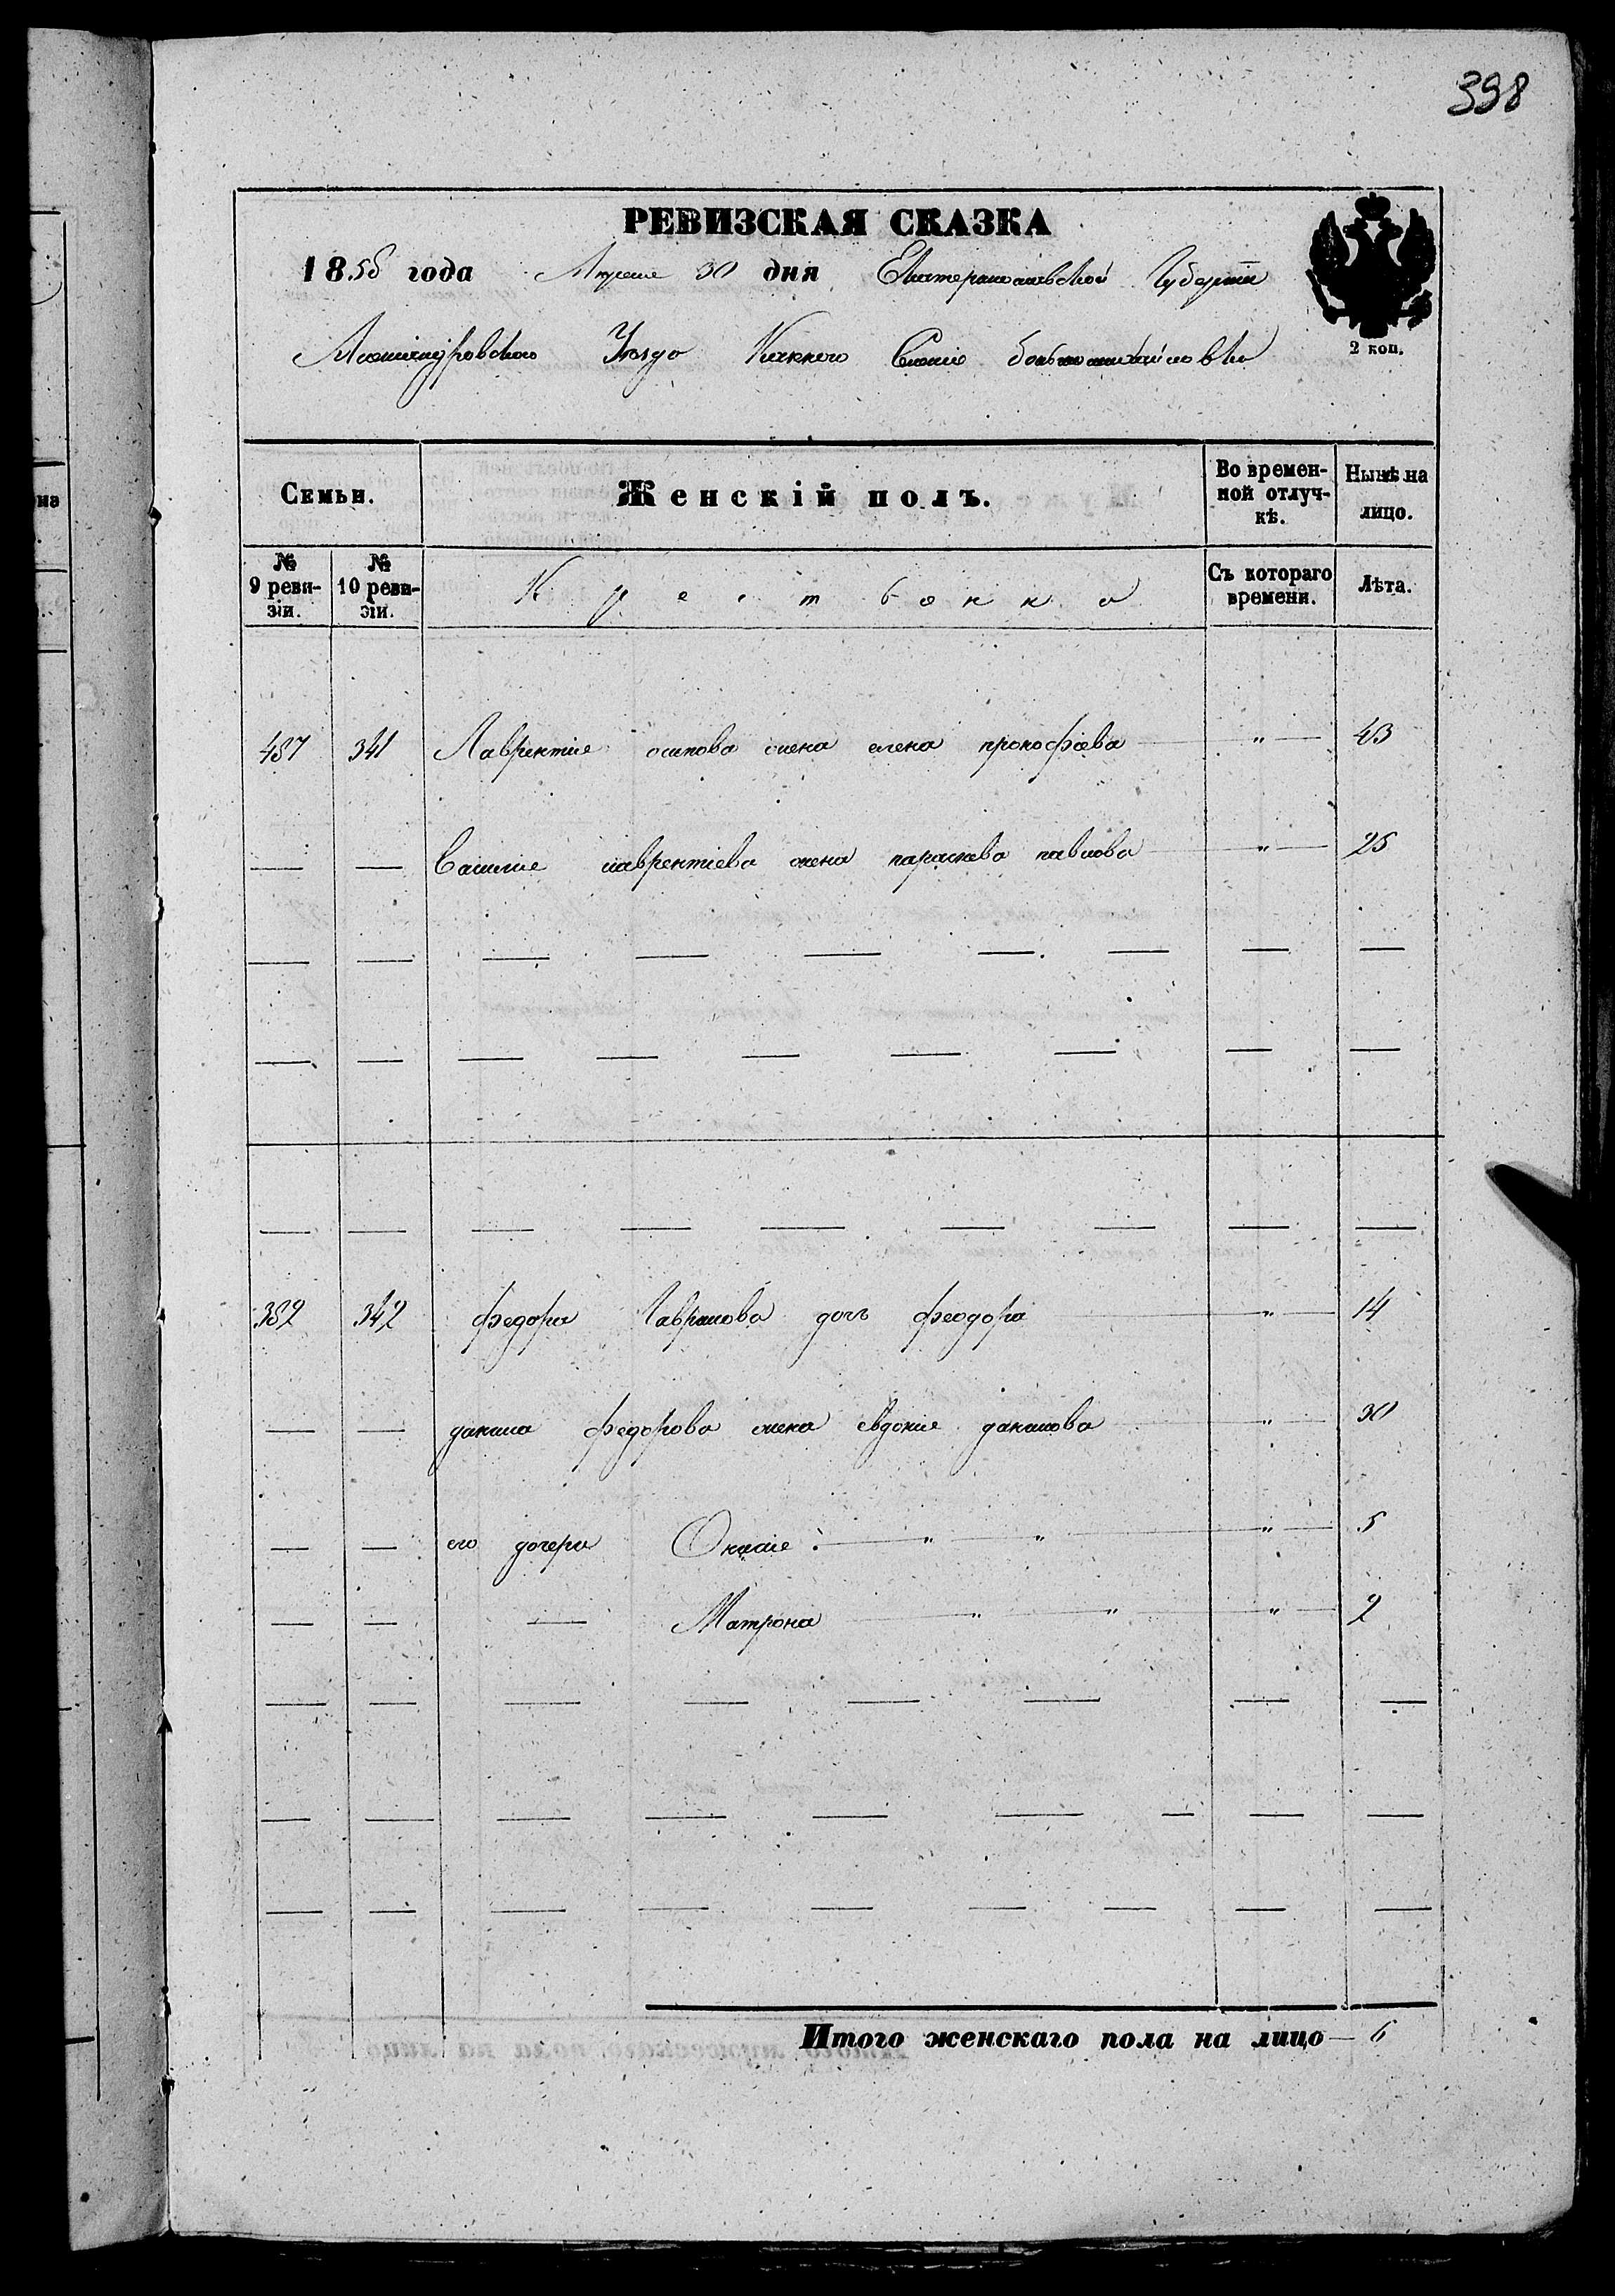 398
РЕВИЗСКАЯ СКАЗКА
1858 года Апреля 30 дня Екатеринославской Губернии
Александровского Уезда Села
2 коп.
Семьи. Женскій полъ. Во временной отлучкѣ. Нынѣ на лицо.
№ 9 ревизіи. № 10 ревизіи. Крестьянка Съ котораго времени. Лѣта.
487 341 Лаврентіе осипова жена елена прокофіева — " — 43
— — Василіе лаврентіева жена параскева павлова — " — 25
382 342 федора Гаврилова доч феодора — " — 14
— — данила федорова жена евдокіе данилова — " — 30
— — его дочери — " — " — " — 5
— — — Матрона — " — " — " — 2
Итого женскаго пола на лицо — 6